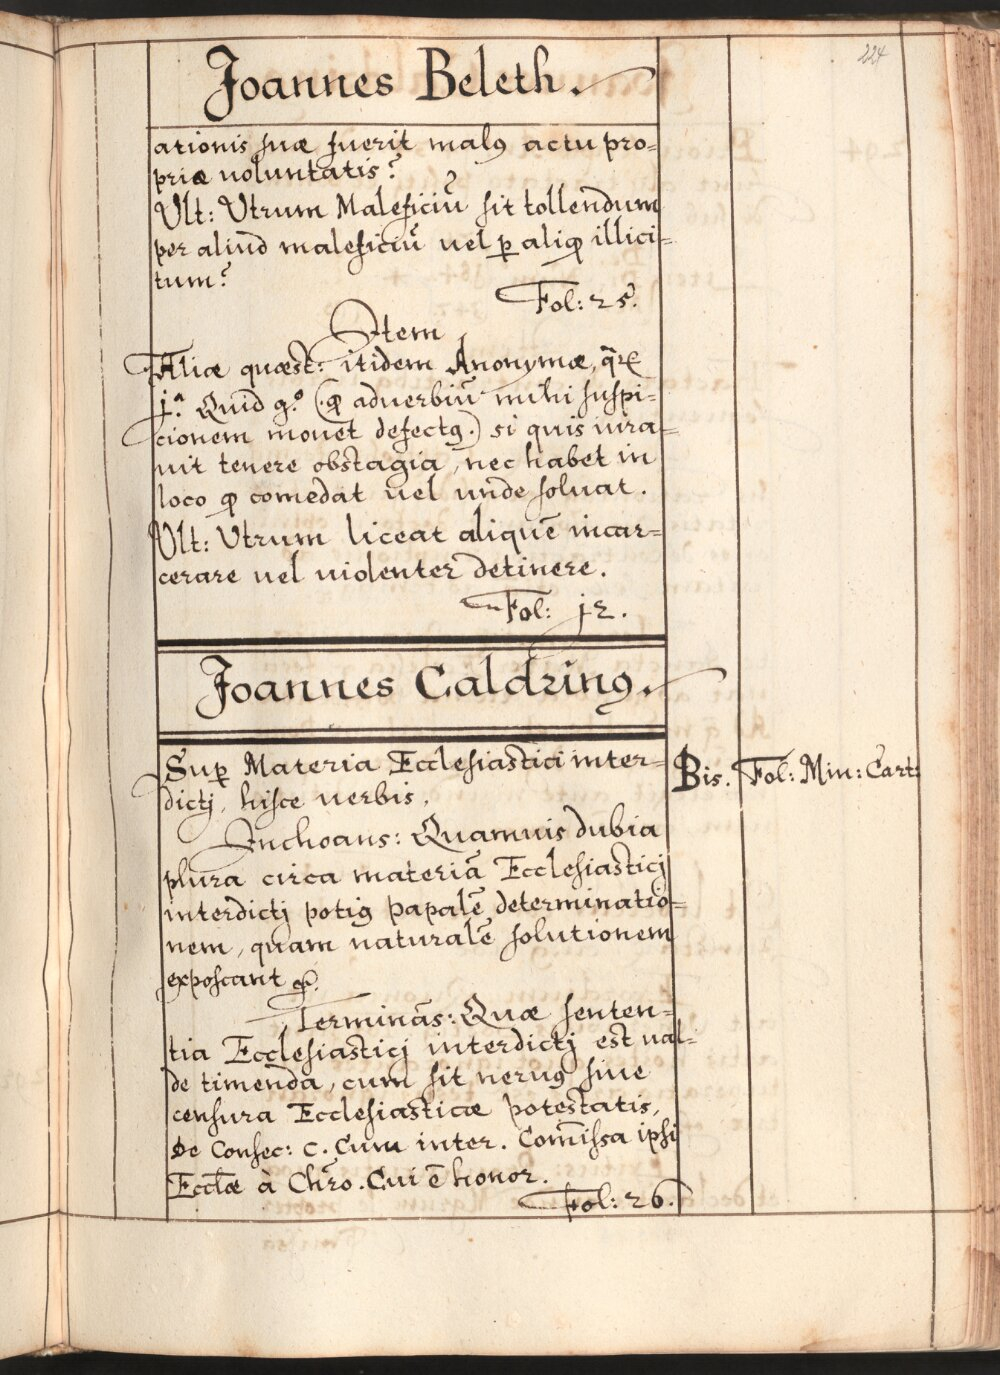 224
Joannes Beleth.
ationis suæ fuerit malꝰ actu pro=
priæ voluntatis?
Ult: Utrum Maleficiū sit tollendum
per aliud maleficiū uel ꝑ aliqꝫ illici=
tum?
Fol: 25.
Item
Aliæ quæst: itidem Anonymæ,
j.ª Quid g.º (qꝫ aduerbiū mihi suspi=
cionem mouet defectꝰ.) si quis iura=
uit tenere obstagia, nec habet in
loco qꝫ comedat uel unde soluat.
Ult: Utrum liceat aliquē incar=
cerare uel uiolenter detinere.
Fol: j2.
Joannes Caldrinꝰ.
Suꝑ Materia Ecclesiastici inter=
dictj, hisce uerbis,
Bis. Fol: Min: Cart:
Inchoans: Quamuis dubia
plura circa materiā Ecclesiasticj
interdictj potiꝰ papalē determinatio=
nem, quam naturalē solutionem
exposcant &.
Terminās: Quæ senten=
tia Ecclesiasticj interdictj est ual=
de timenda, cum sit neruꝰ siue
censura Ecclesiasticæ potestatis,
De Consec: c. Cum inter. Com̄issa ipsi
Eccl̄æ à Chr̄o. Cui ē honor.
Fol: 26.